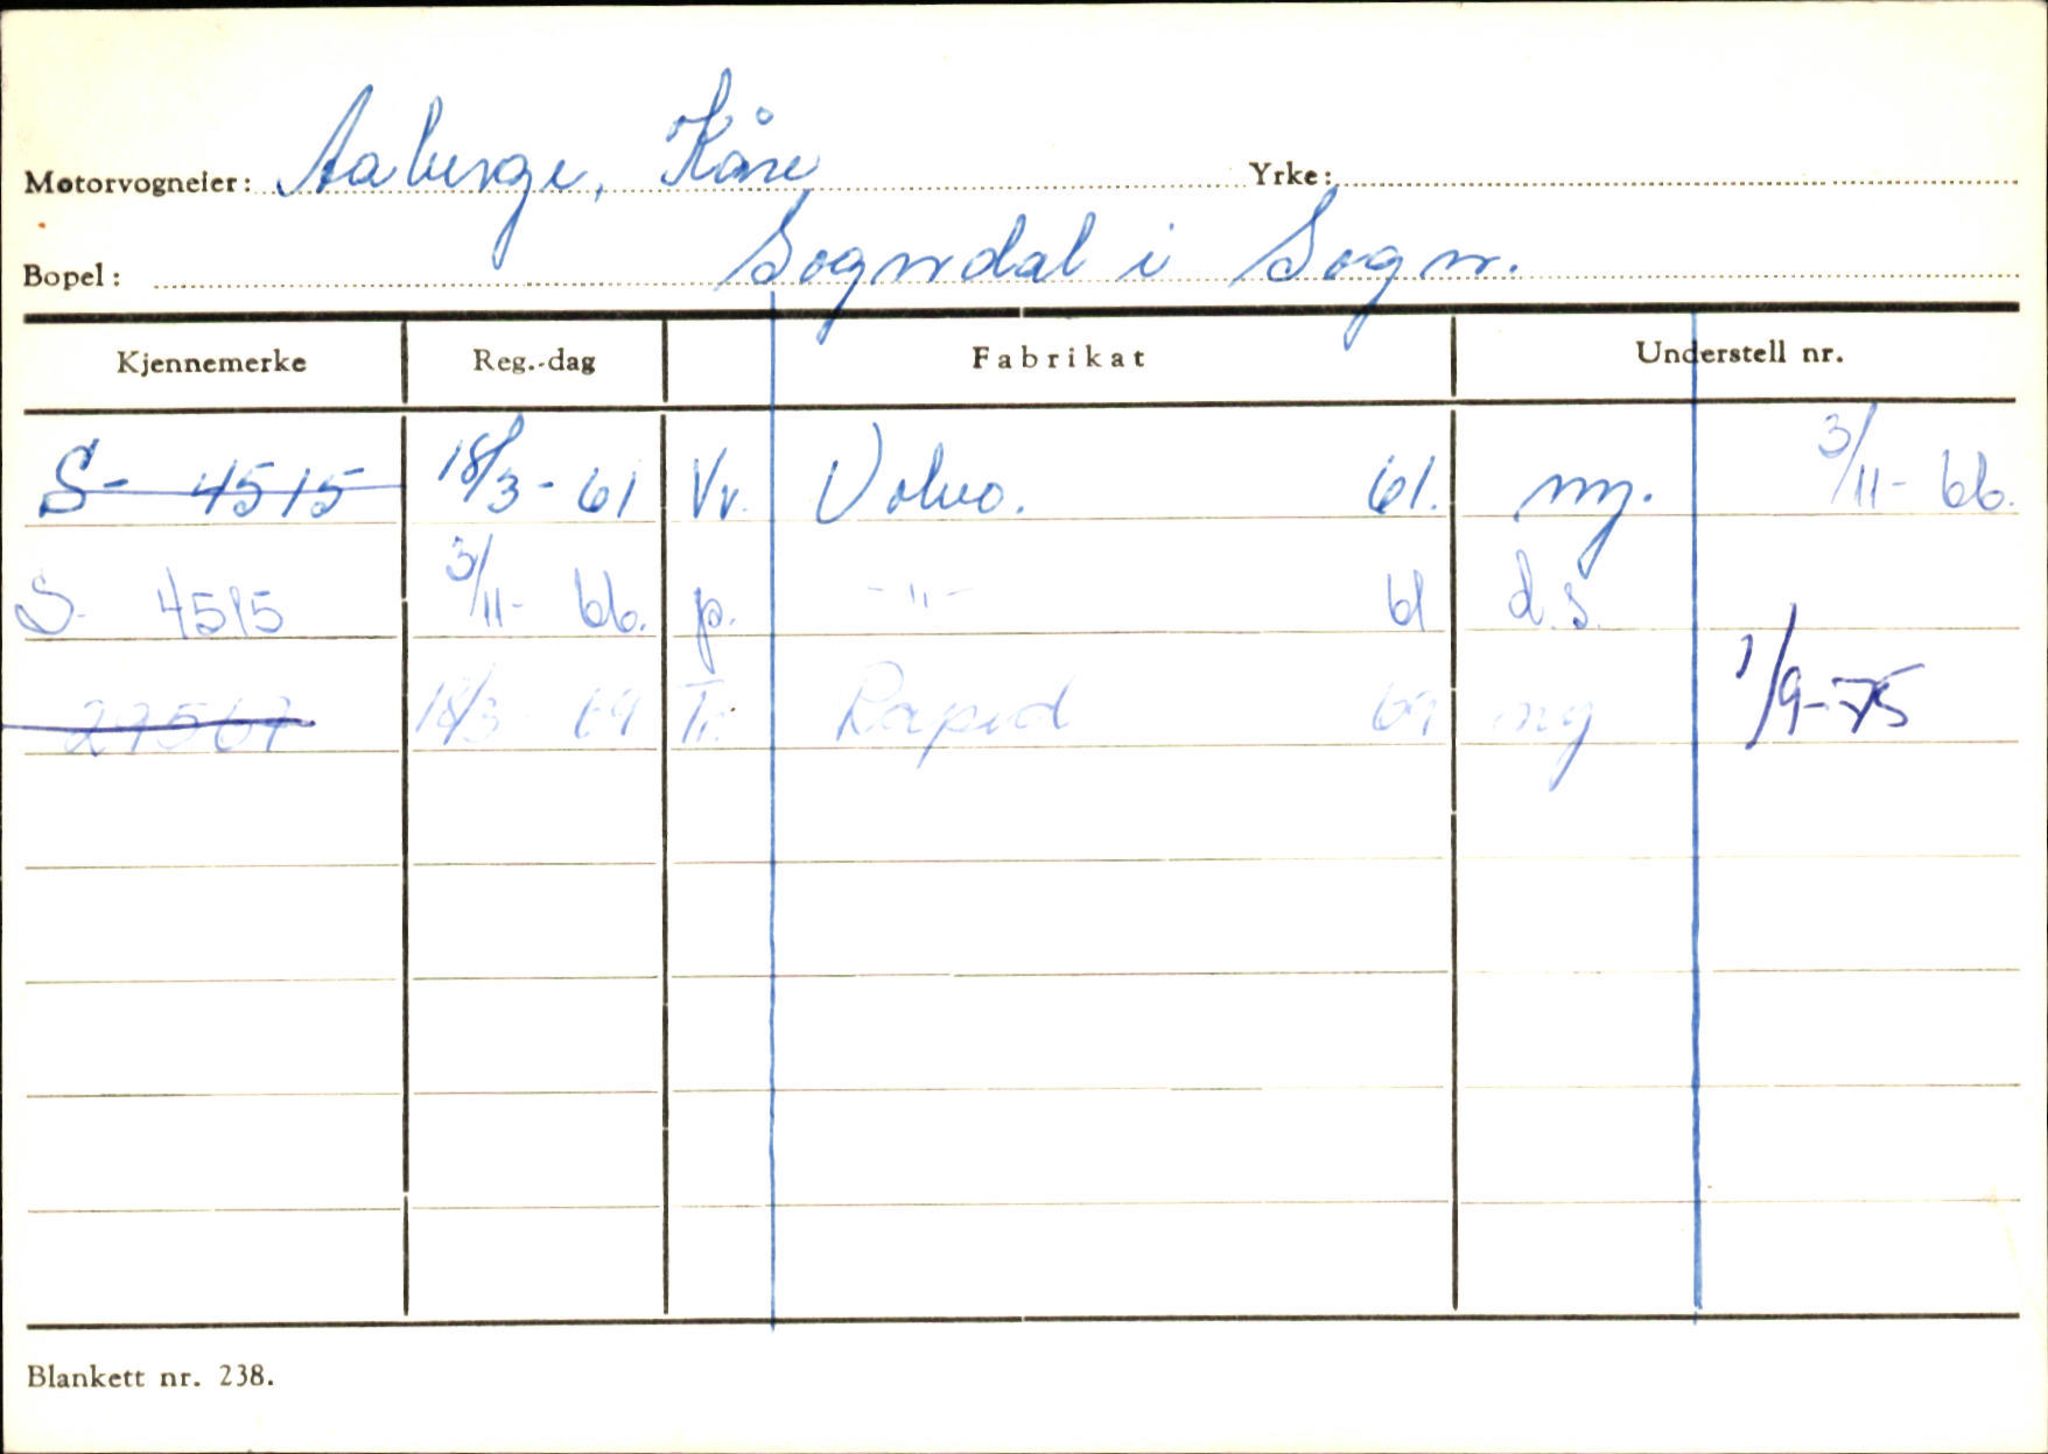 Motorvogneier: Aaberge, Kåre Yrke:
Bopel: Sogndal i Sogn.
Kjennemerke Reg.-dag Fabrikat Understell nr.
S- 4515 18/3-61 Vv. Volvo. 61. ny. 3/11-66.
S- 4515 3/11-66. p. -"- 61 d.s.
18/3-69 Tr. Rapid 69 ny 1/9-75
Blankett nr. 238.